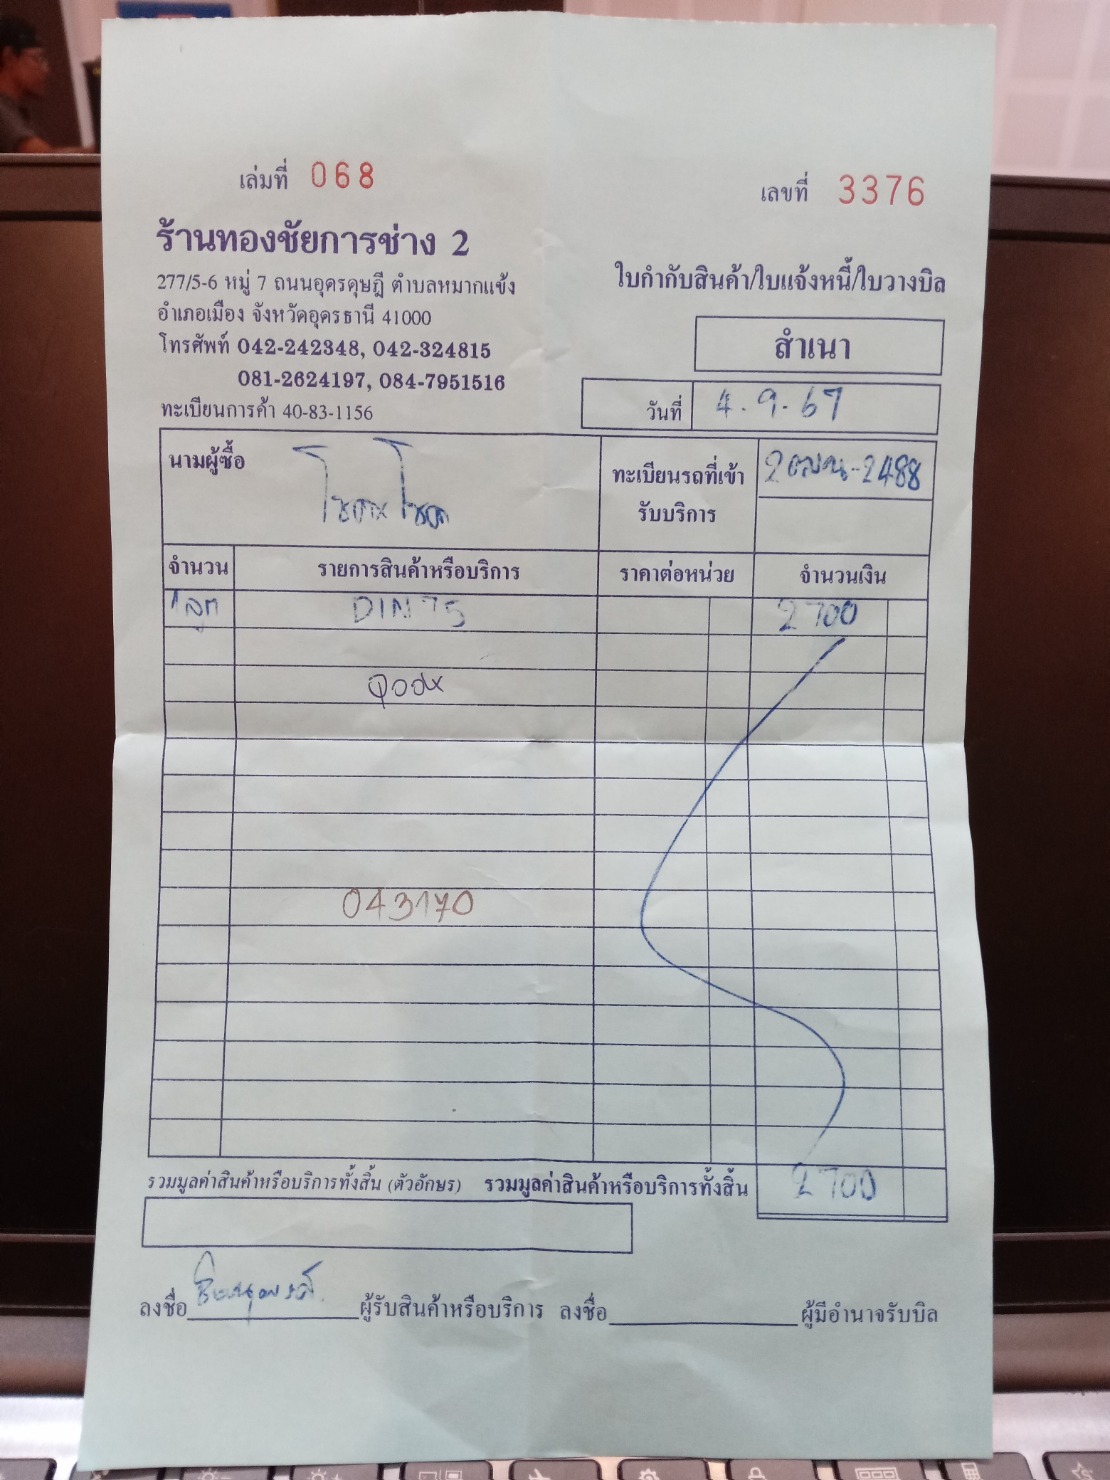 เล่มที่ 068
เลขที่ 3376
ร้านทองชัยการช่าง 2
277/5-6 หมู่ 7 ถนนอุดรดุษฎี ตำบลหมากแข้ง
อำเภอเมือง จังหวัดอุดรธานี 41000
โทรศัพท์ 042-242348, 042-324815
081-2624197, 084-7951516
ทะเบียนการค้า 40-83-1156
ใบกำกับสินค้า/ใบแจ้งหนี้/ใบวางบิล
สำเนา
วันที่ 4.9.67
นามผู้ซื้อ
ทะเบียนรถที่เข้ารับบริการ -2488
จำนวน รายการสินค้าหรือบริการ ราคาต่อหน่วย จำนวนเงิน
1 ลูก DIN 75 2700
043170
รวมมูลค่าสินค้าหรือบริการทั้งสิ้น (ตัวอักษร) รวมมูลค่าสินค้าหรือบริการทั้งสิ้น 2700
ลงชื่อ ผู้รับสินค้าหรือบริการ ลงชื่อ ผู้มีอำนาจรับบิล